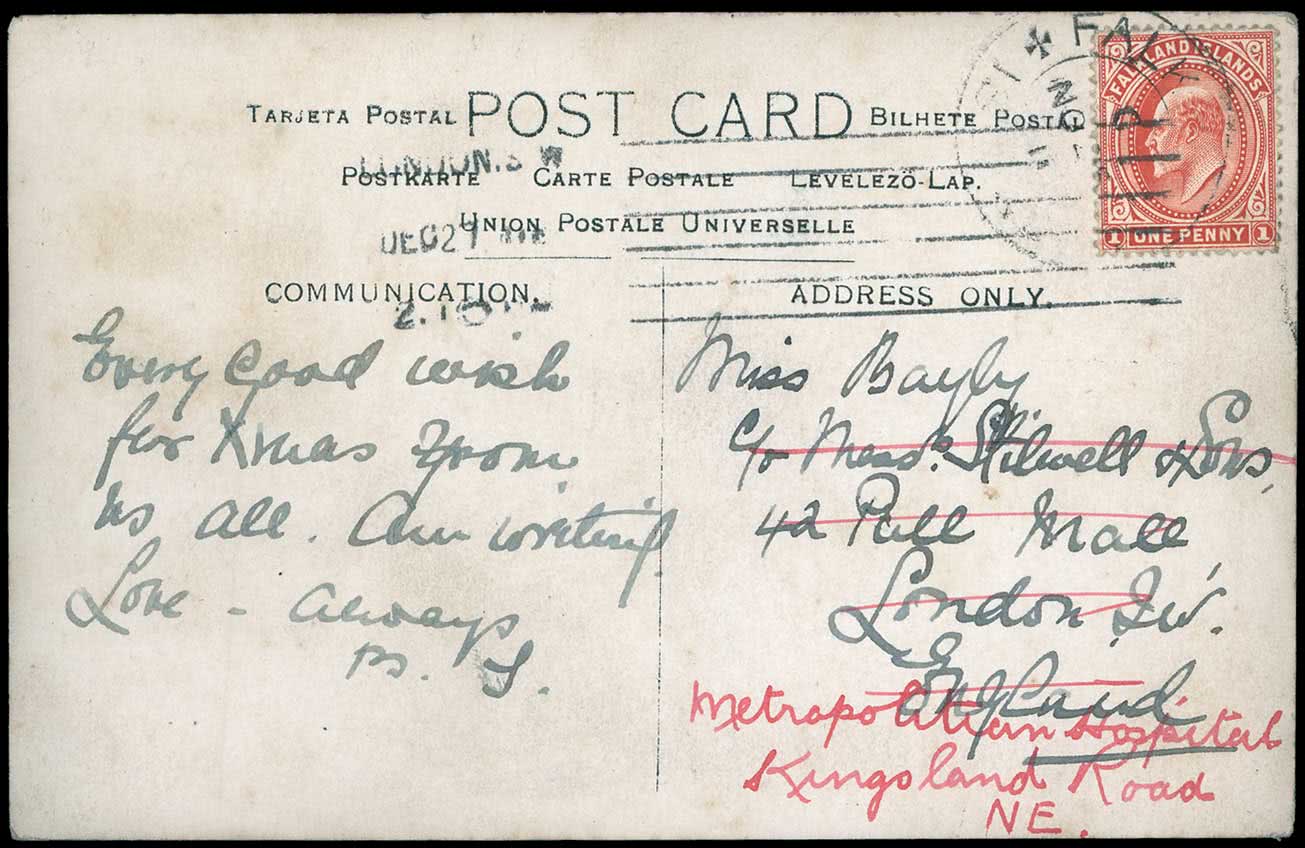 FALKLAND ISLANDS
ONE PENNY
1 1
TARJETA POSTAL POST CARD BILHETE POSTAL
POSTKARTE CARTE POSTALE LEVELEZŐ-LAP.
UNION POSTALE UNIVERSELLE
LONDON.S.W
DEC 27
COMMUNICATION.
ADDRESS ONLY.
Every good wish
for Xmas from
us all. Am writing.
Love - always
Miss Bayly
c/o Messrs. Stilwell & Sons,
42 Pall Mall
London S.W.
England
Metropolitian Hospital
Kingsland Road
NE.